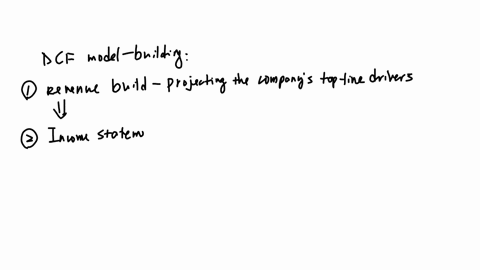 DCF model-building:
① Revenue build - Projecting the company's top-line drivers
② Income statem